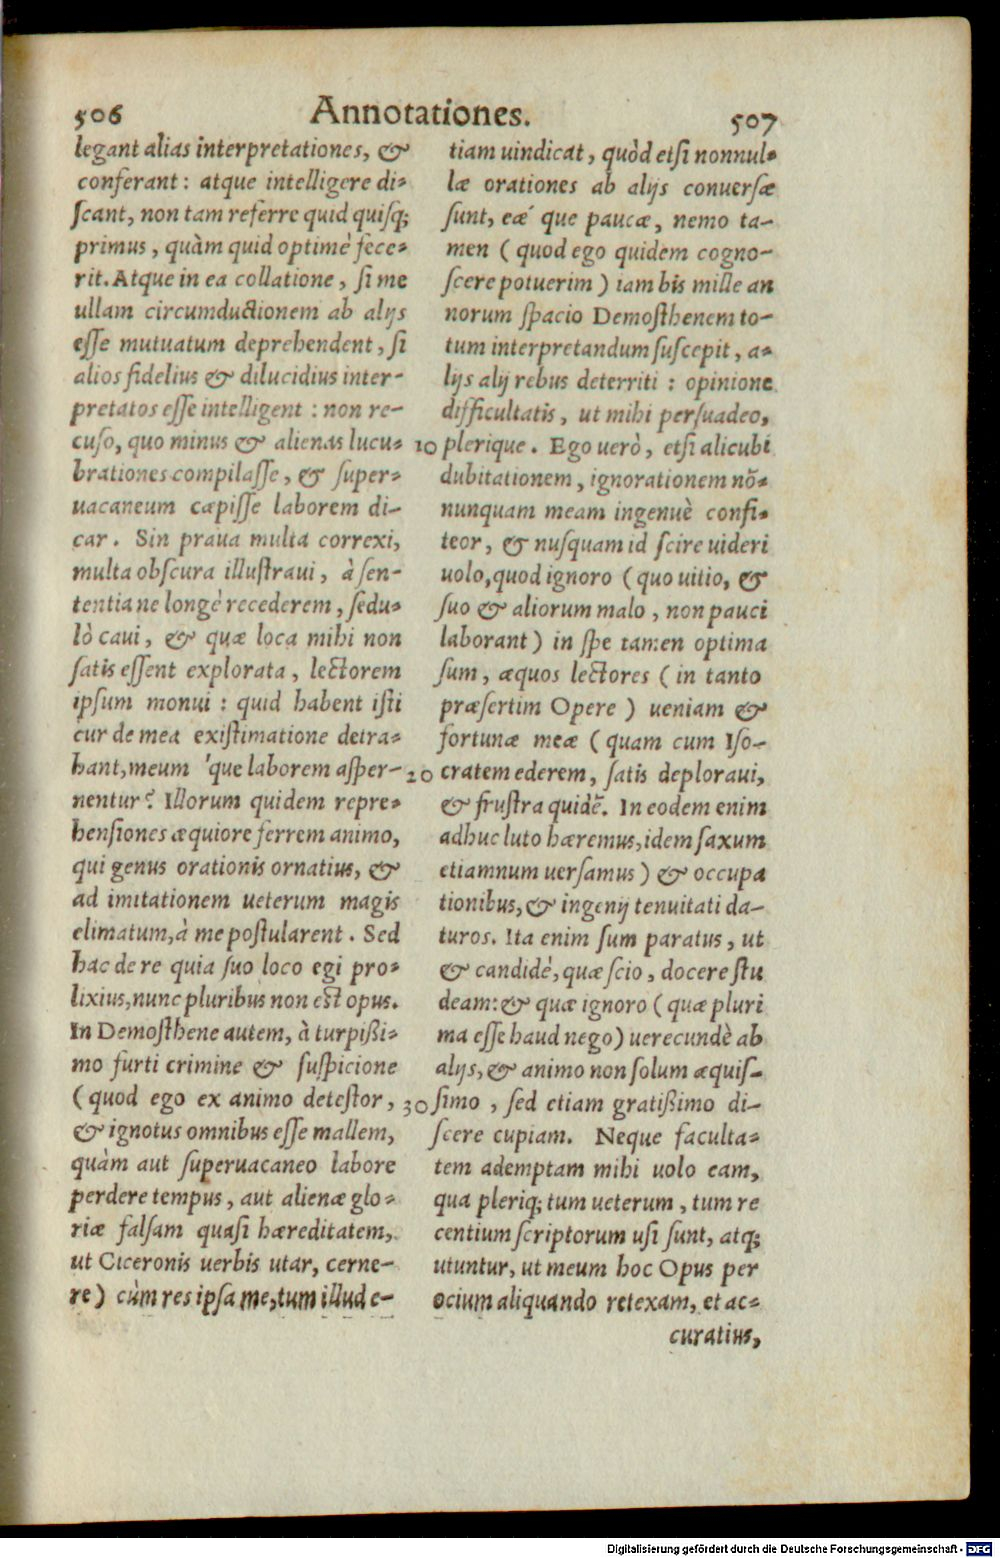 506 Annotationes. 507
legant alias interpretationes, &
conferant: atque intelligere di-
scant, non tam referre quid quisq;
primus, quàm quid optimè fece-
rit. Atque in ea collatione, si me
ullam circumductionem ab alijs
esse mutuatum deprehendent, si
alios fidelius & dilucidius inter-
pretatos esse intelligent: non re-
cuso, quo minus & alienas lucu-
brationes compilasse, & super-
uacaneum cæpisse laborem di-
car. Sin praua multa correxi,
multa obscura illustraui, à sen-
tentia ne longè recederem, sedu-
lò caui, & quæ loca mihi non
satis essent explorata, lectorem
ipsum monui: quid habent isti
cur de mea existimatione detra-
hant, meum 'que laborem asper-
nentur? Illorum quidem repre-
hensiones æquiore ferrem animo,
qui genus orationis ornatius, &
ad imitationem ueterum magis
elimatum, à me postularent. Sed
hac de re quia suo loco egi pro-
lixius, nunc pluribus non est opus.
In Demosthene autem, à turpißi-
mo furti crimine & suspicione
(quod ego ex animo detestor,
& ignotus omnibus esse mallem,
quàm aut superuacaneo labore
perdere tempus, aut alienæ glo-
riæ falsam quasi hæreditatem,
ut Ciceronis uerbis utar, cerne-
re) cùm res ipsa me, tum illud e-
tiam uindicat, quòd etsi nonnul-
læ orationes ab alijs conuersæ
sunt, eæ' que paucæ, nemo ta-
men (quod ego quidem cogno-
scere potuerim) iam bis mille an
norum spacio Demosthenem to-
tum interpretandum suscepit, a-
lijs alij rebus deterriti: opinione
difficultatis, ut mihi persuadeo,
10 plerique. Ego uerò, etsi alicubi
dubitationem, ignorationem nõ-
nunquam meam ingenuè confi-
teor, & nusquam id scire uideri
uolo, quod ignoro (quo uitio, &
suo & aliorum malo, non pauci
laborant) in spe tamen optima
sum, æquos lectores (in tanto
præsertim Opere) ueniam &
fortunæ meæ (quam cum Iso-
20 cratem ederem, satis deploraui,
& frustra quidẽ. In eodem enim
adhuc luto hæremus, idem saxum
etiamnum uersamus) & occupa
tionibus, & ingenij tenuitati da-
turos. Ita enim sum paratus, ut
& candidè, quæ scio, docere stu
deam: & quæ ignoro (quæ pluri
ma esse haud nego) uerecundè ab
alijs, & animo non solum æquis-
30 simo, sed etiam gratißimo di-
scere cupiam. Neque faculta-
tem ademptam mihi uolo eam,
qua pleriq; tum ueterum, tum re
centium scriptorum usi sunt, atq;
utuntur, ut meum hoc Opus per
ocium aliquando retexam, et ac-
curatius,
Digitalisierung gefördert durch die Deutsche Forschungsgemeinschaft - DFG